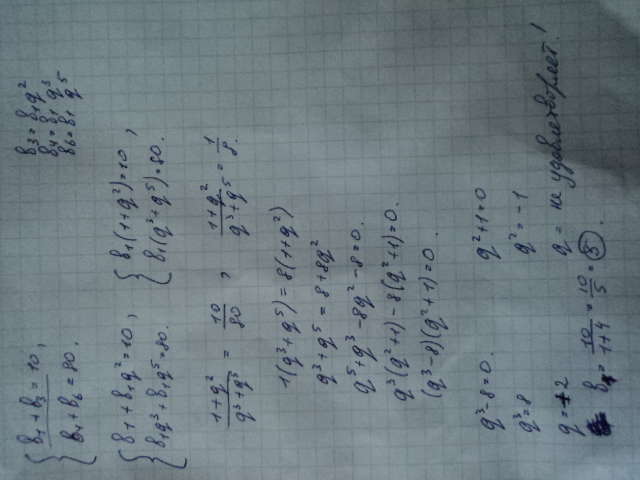 b₁ + b₃ = 10,
b₄ + b₆ = 80.
b₃ = b₁q²
b₄ = b₁q³
b₆ = b₁q⁵
b₁ + b₁q² = 10,
b₁q³ + b₁q⁵ = 80.
b₁(1+q²) = 10,
b₁(q³+q⁵) = 80.
(1+q²)/(q³+q⁵) = 10/80, (1+q²)/(q³+q⁵) = 1/8.
1(q³+q⁵) = 8(1+q²)
q³+q⁵ = 8+8q²
q⁵+q³-8q²-8=0.
q³(q²+1)-8(q²+1)=0.
(q³-8)(q²+1)=0.
q³-8=0. q²+1=0
q³=8 q²=-1
q=2 q= не удовлетворяет!
b₁ = 10/(1+4) = 10/5 = 5.